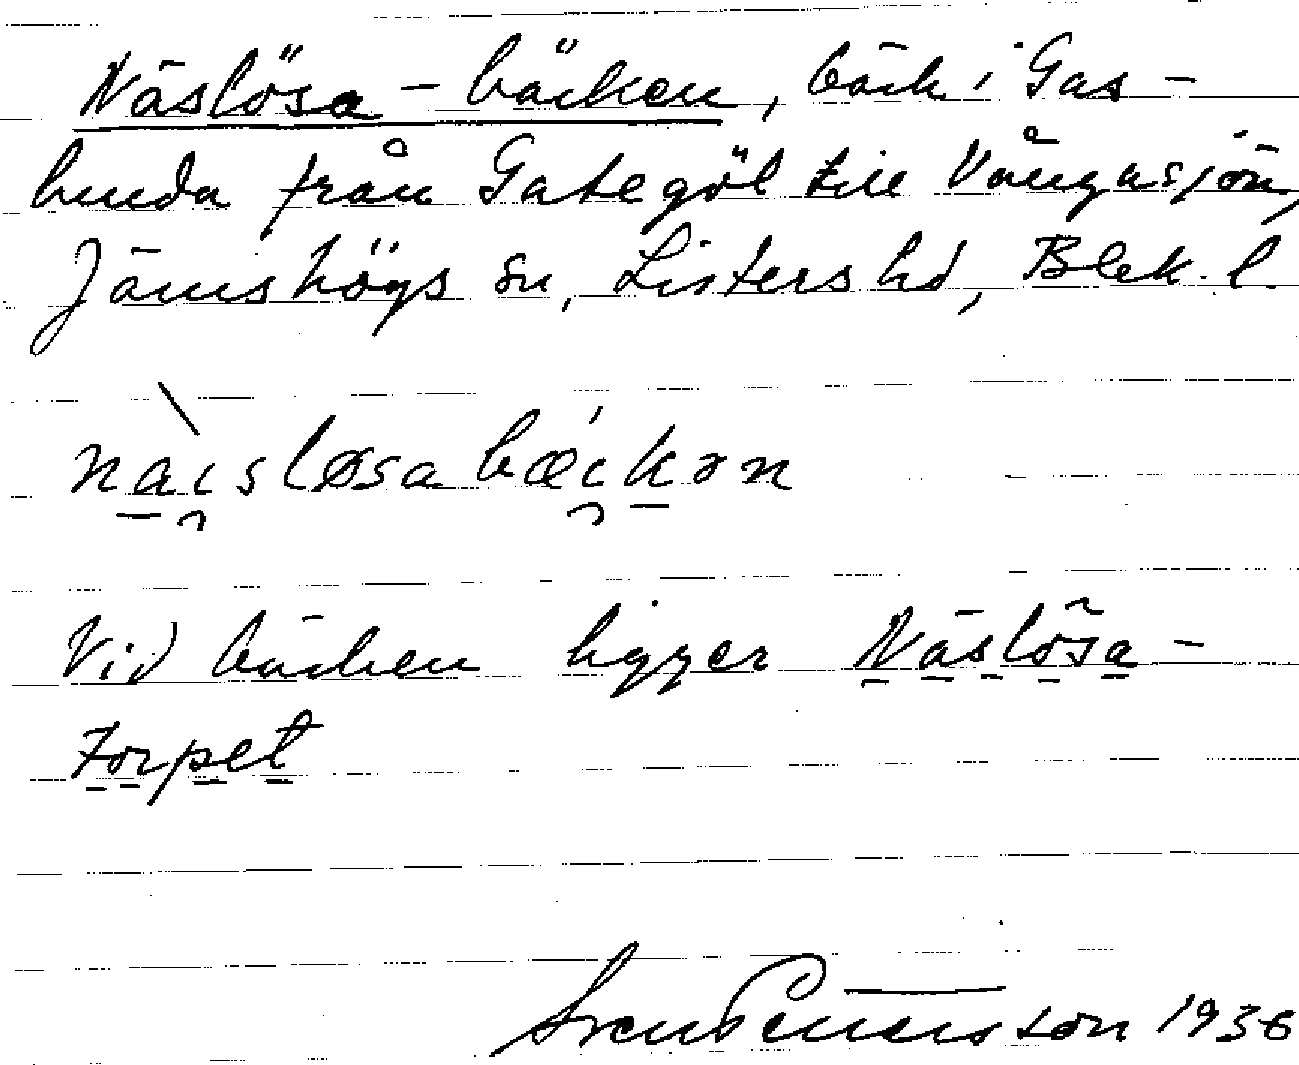 Näslösa-bäcken, bäck i Gas-
lunda från Gategöl till Vångasjön,
Jämshögs sn, Listers hd, Blek. l.
nai̯sløsabæi̯kən
Vid bäcken ligger Näslösa-
torpet
Sven Benson 1936